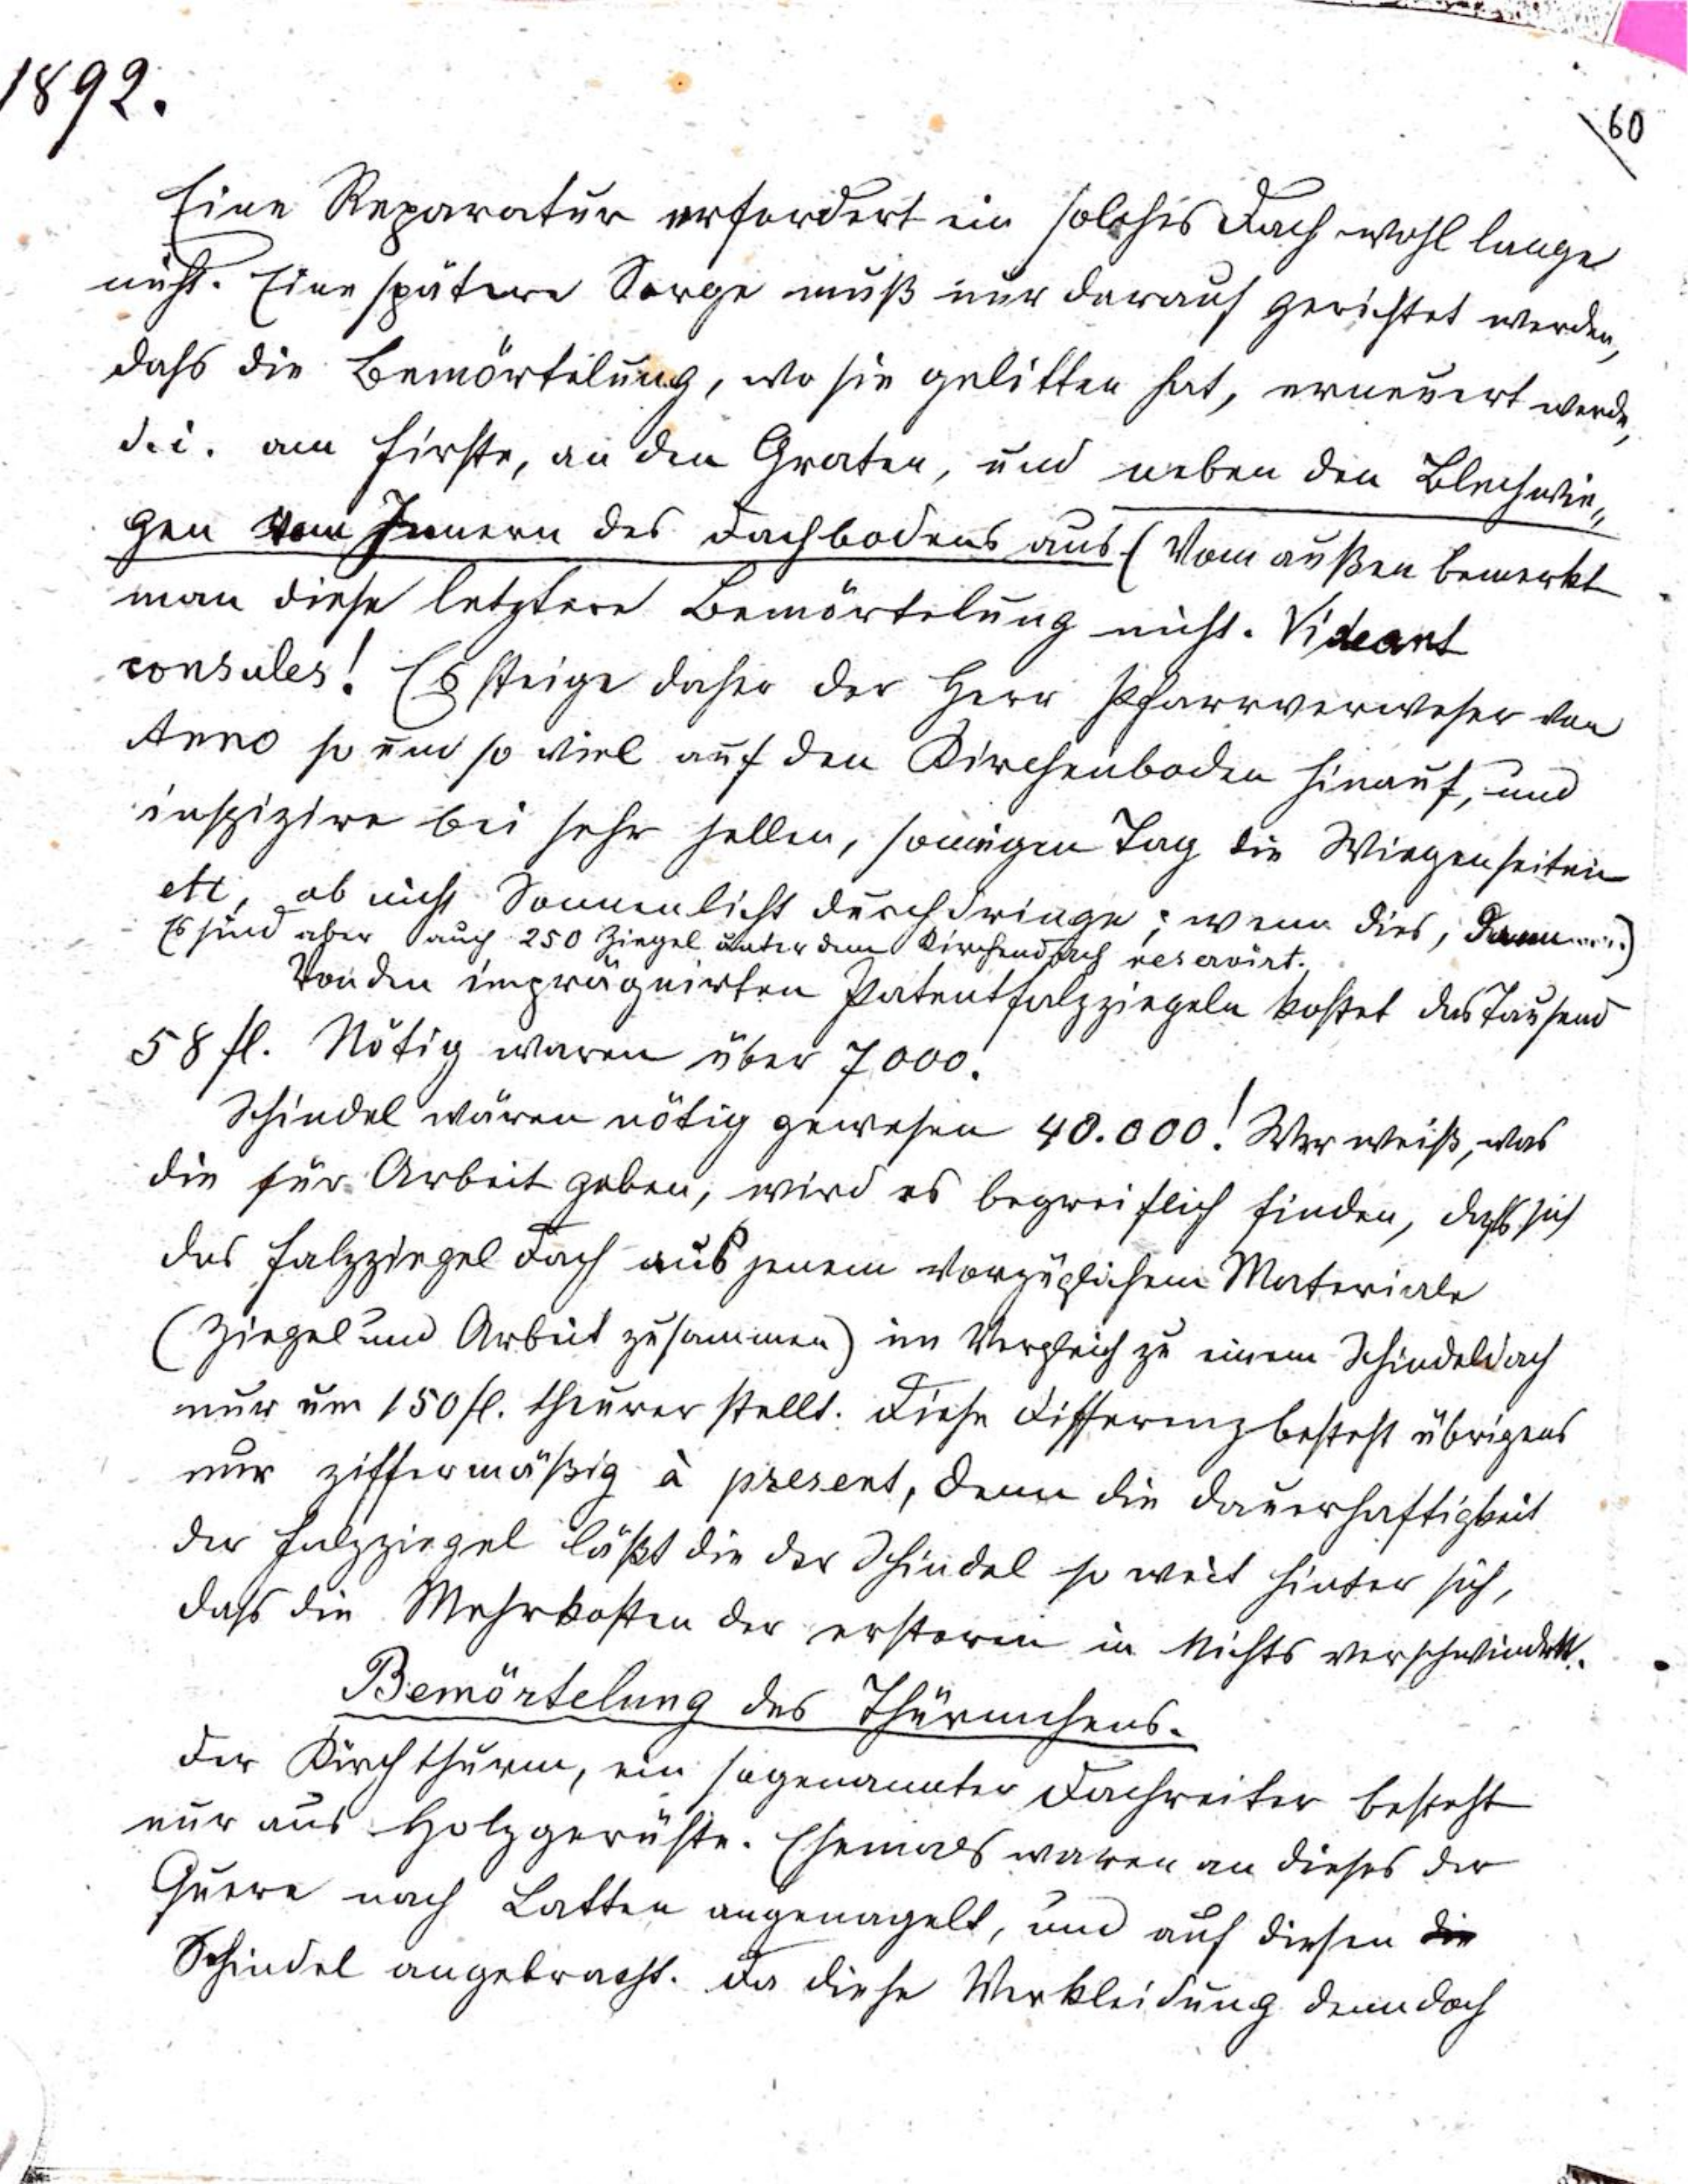 1892.
60
Eine Reparatur erfordert ein solches Dach wohl lange
nicht. Eine spätere Sorge muß nur darauf gerichtet werden,
dass die Bemörtelung, wo sie gelitten hat, erneuert werde,
d. i. am Firste, an den Graten, und neben den Blechwie„
gen vom Innern des Dachbodens aus (Vom außen bemerkt
man diese letztere Bemörtelung nicht. Videant
consules! Es steige daher der Herr Pfarrverweser von
Anno so und so viel auf den Kirchenboden hinauf, und
inspizire bei sehr hellen, sonnigen Tag die Wiegenseiten
etc, ob nicht Sonnenlicht durchdringe; wenn dies, dann.....)
Es sind aber auch 250 Ziegel unter dem Kirchendach reservirt.
Von den imprägnirten Patentfalzziegeln kostet das Tausend
58 fl. Nötig waren über 7000.
Schindel wären nötig gewesen 40.000! Wer weiß, was
die für Arbeit geben, wird es begreiflich finden, dass sich
das Falzziegeldach aus jenem vorzüglichem Materiale
(Ziegel und Arbeit zusammen) im Vergleich zu einem Schindeldach
nur um 150 fl. theurer stellt. Diese Differenz besteht übrigens
nur ziffermäßig à present, denn die Dauerhaftigkeit
der Falzziegel läßt die der Schindel so weit hinter sich,
dass die Mehrkosten der ersteren in Nichts verschwindet.
Bemörtelung des Thürmchens.
Der Kirchthurm, ein sogenannter Dachreiter besteht
nur aus Holzgerüste. Ehemals waren an dieses der
Quere nach Latten angenagelt, und auf diesen die
Schindel angebracht. Da diese Verkleidung denn doch